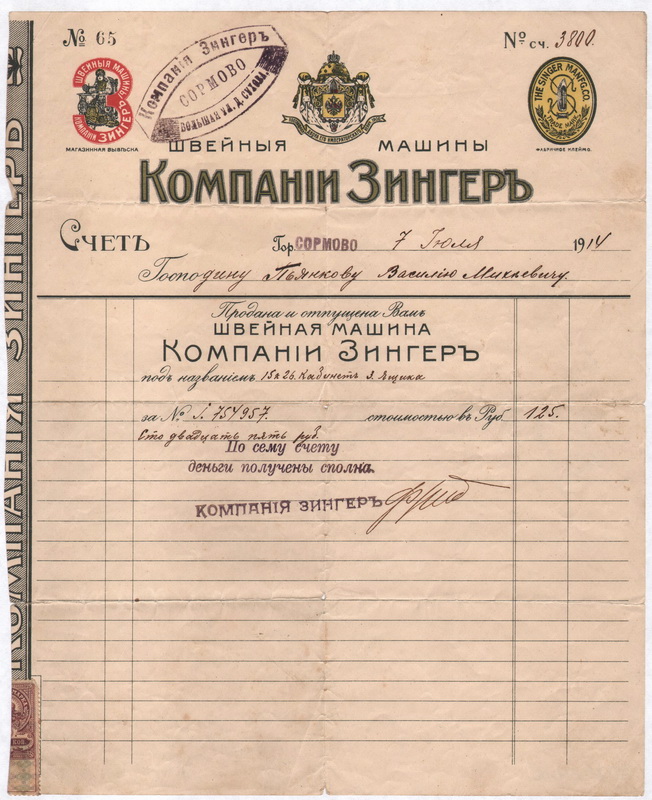 № 65
Компанія Зингеръ
СОРМОВО
БОЛЬШАЯ УЛ. Д.
№ сч. 3800.
ШВЕЙНЫЯ МАШИНЫ
КОМПАНІИ
ЗИНГЕРЪ
МАГАЗИННАЯ ВЫВѢСКА
THE SINGER MANFG. CO.
TRADE MARK
ФАБРИЧНОЕ КЛЕЙМО.
ШВЕЙНЫЯ МАШИНЫ
КОМПАНІИ ЗИНГЕРЪ
СЧЕТЪ
Гор. СОРМОВО 7 Іюля 1914
Господину Пьянкову Василію Михѣевичу.
Продана и отпущена Вамъ
ШВЕЙНАЯ МАШИНА
КОМПАНІИ ЗИНГЕРЪ
подъ названіемъ 15 к 26. Кабинетъ 3. Ящика
за № 754957 стоимостью въ Руб. 125.
Сто двадцать пять руб.
По сему счету
деньги получены сполна.
КОМПАНІЯ ЗИНГЕРЪ
КОМПАНІЯ ЗИНГЕРЪ